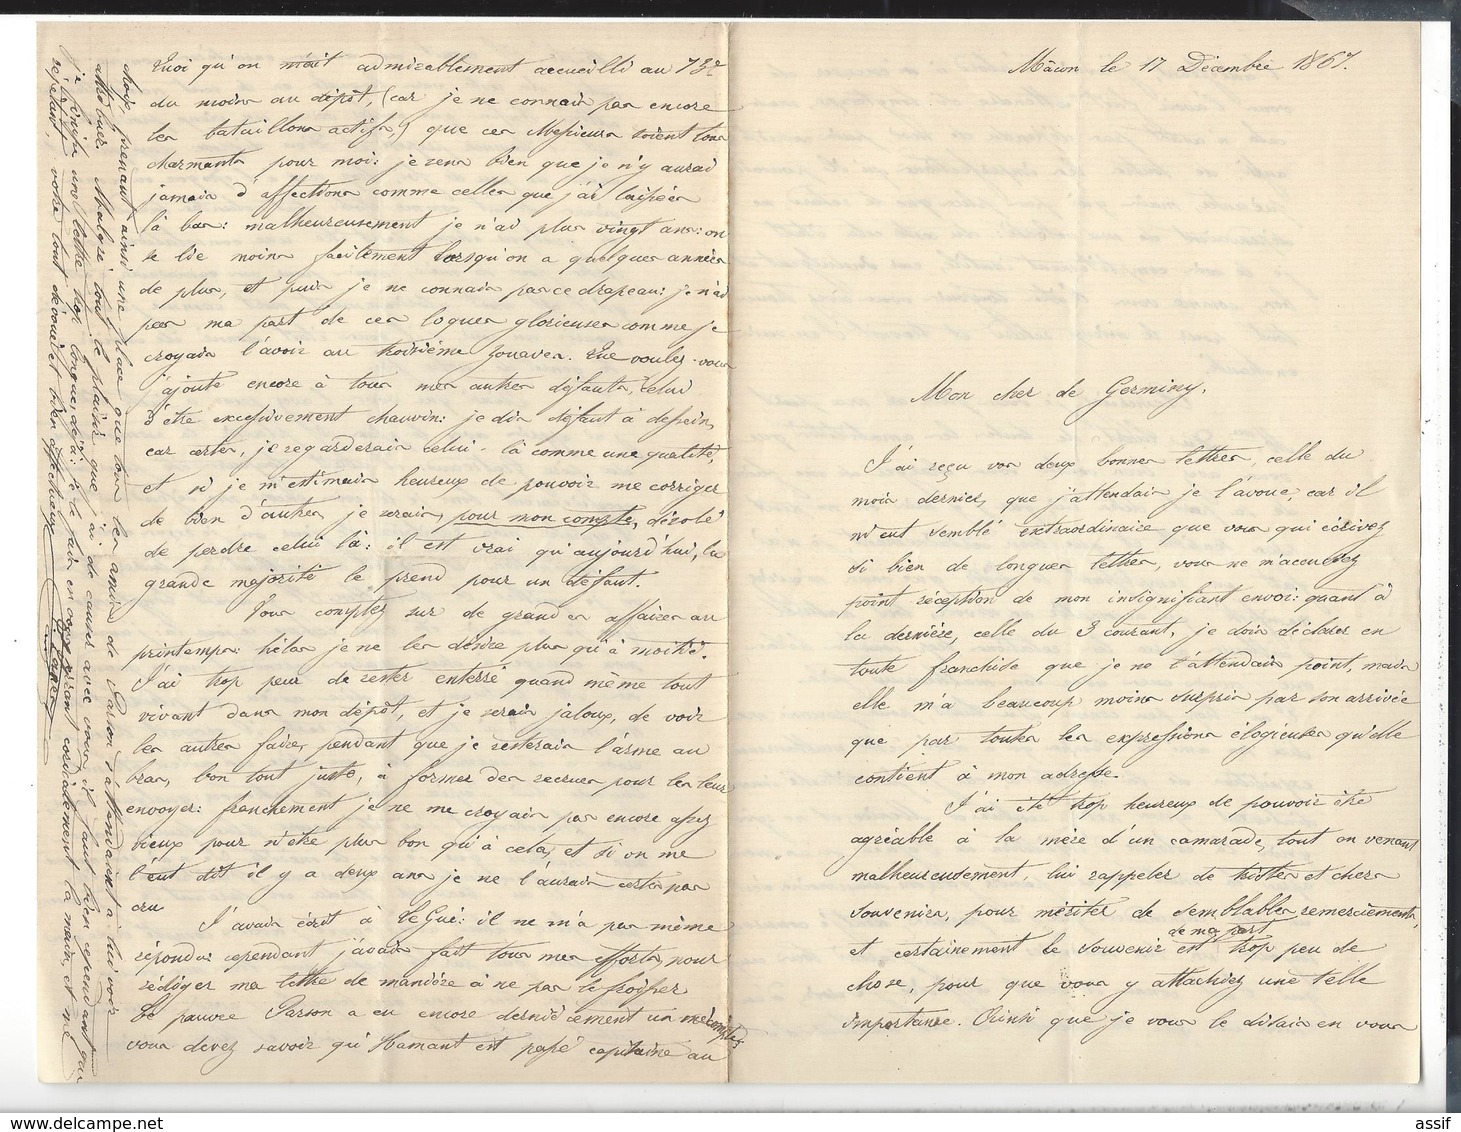 Mâcon le 17 Décembre 1867.
Mon cher de Germiny,
J'ai reçu vos deux bonnes lettres, celle du
mois dernier, que j'attendais je l'avoue, car il
m'eut semblé extraordinaire que vous qui écrivez
si bien de longues lettres, vous ne m'accusiez
point réception de mon insignifiant envoi: quant à
la dernière, celle du 3 courant, je dois déclarer en
toute franchise que je ne l'attendais point, mais
elle m'a beaucoup moins surpris par son arrivée
que par toutes les expressions élogieuses qu'elle
contient à mon adresse.
J'ai été trop heureux de pouvoir être
agréable à la mère d'un camarade, tout en venant
malheureusement, lui rappeler de tristes et chers
souvenirs, pour mériter de semblables remerciements,
et certainement le souvenir de ma part est trop peu de
chose, pour que vous y attachiez une telle
importance. Ainsi que je vous le disais en vous
Quoi qu'on m'ait admirablement accueilli au 73e
du moins au dépôt, (car je ne connais pas encore
les bataillons actifs,) que ces Messieurs soient tous
charmants pour moi: je sens bien que je n'y aurai
jamais d'affections comme celles que j'ai laissées
là bas: malheureusement je n'ai plus vingt ans: on
se lie moins facilement lorsqu'on a quelques années
de plus, et puis je ne connais pas ce drapeau: je n'ai
pas ma part de ces loques glorieuses comme je
croyais l'avoir au troisième zouaves. Que voulez-vous
j'ajoute encore à tous mes autres défauts, celui
d'être excessivement chauvin: je dis défaut à dessein,
car certes, je regarderais celui-là comme une qualité,
et si je m'estimais heureux de pouvoir me corriger
de bien d'autres, je serais, pour mon compte, désolé
de perdre celui là: il est vrai qu'aujourd'hui, la
grande majorité le prend pour un défaut.
Vous comptez sur de grandes affaires au
printemps: hélas je ne les désire plus qu'à moitié.
J'ai trop peur de rester enterré quand même tout
vivant dans mon dépôt, et je serais jaloux, de voir
les autres faire, pendant que je resterais l'arme au
bras, bon tout juste, à former des recrues pour les leur
envoyer: franchement je ne me croyais pas encore assez
vieux pour n'être plus bon qu'à cela, et si on me
l'eut dit il y a deux ans je ne l'aurais certes pas
cru
J'avais écrit à Le Gué: il ne m'a pas même
répondu: cependant j'avais fait tous mes efforts, pour
rédiger ma lettre de manière à ne pas le froisser
Le pauvre Parson a eu encore dernièrement un mécompte,
vous devez savoir qu'Hamant est passé capitaine au
choix, prenant ainsi une place que tous les amis de Parson s'attendaient à lui voir
attribuer. Malgré tout le plaisir que j'ai de causer avec vous, il faut bien cependant que
je finisse une lettre trop longue déjà: je le fais en vous serrant cordialement la main, et me
répétant, votre tout dévoué et bien affectueux
assif